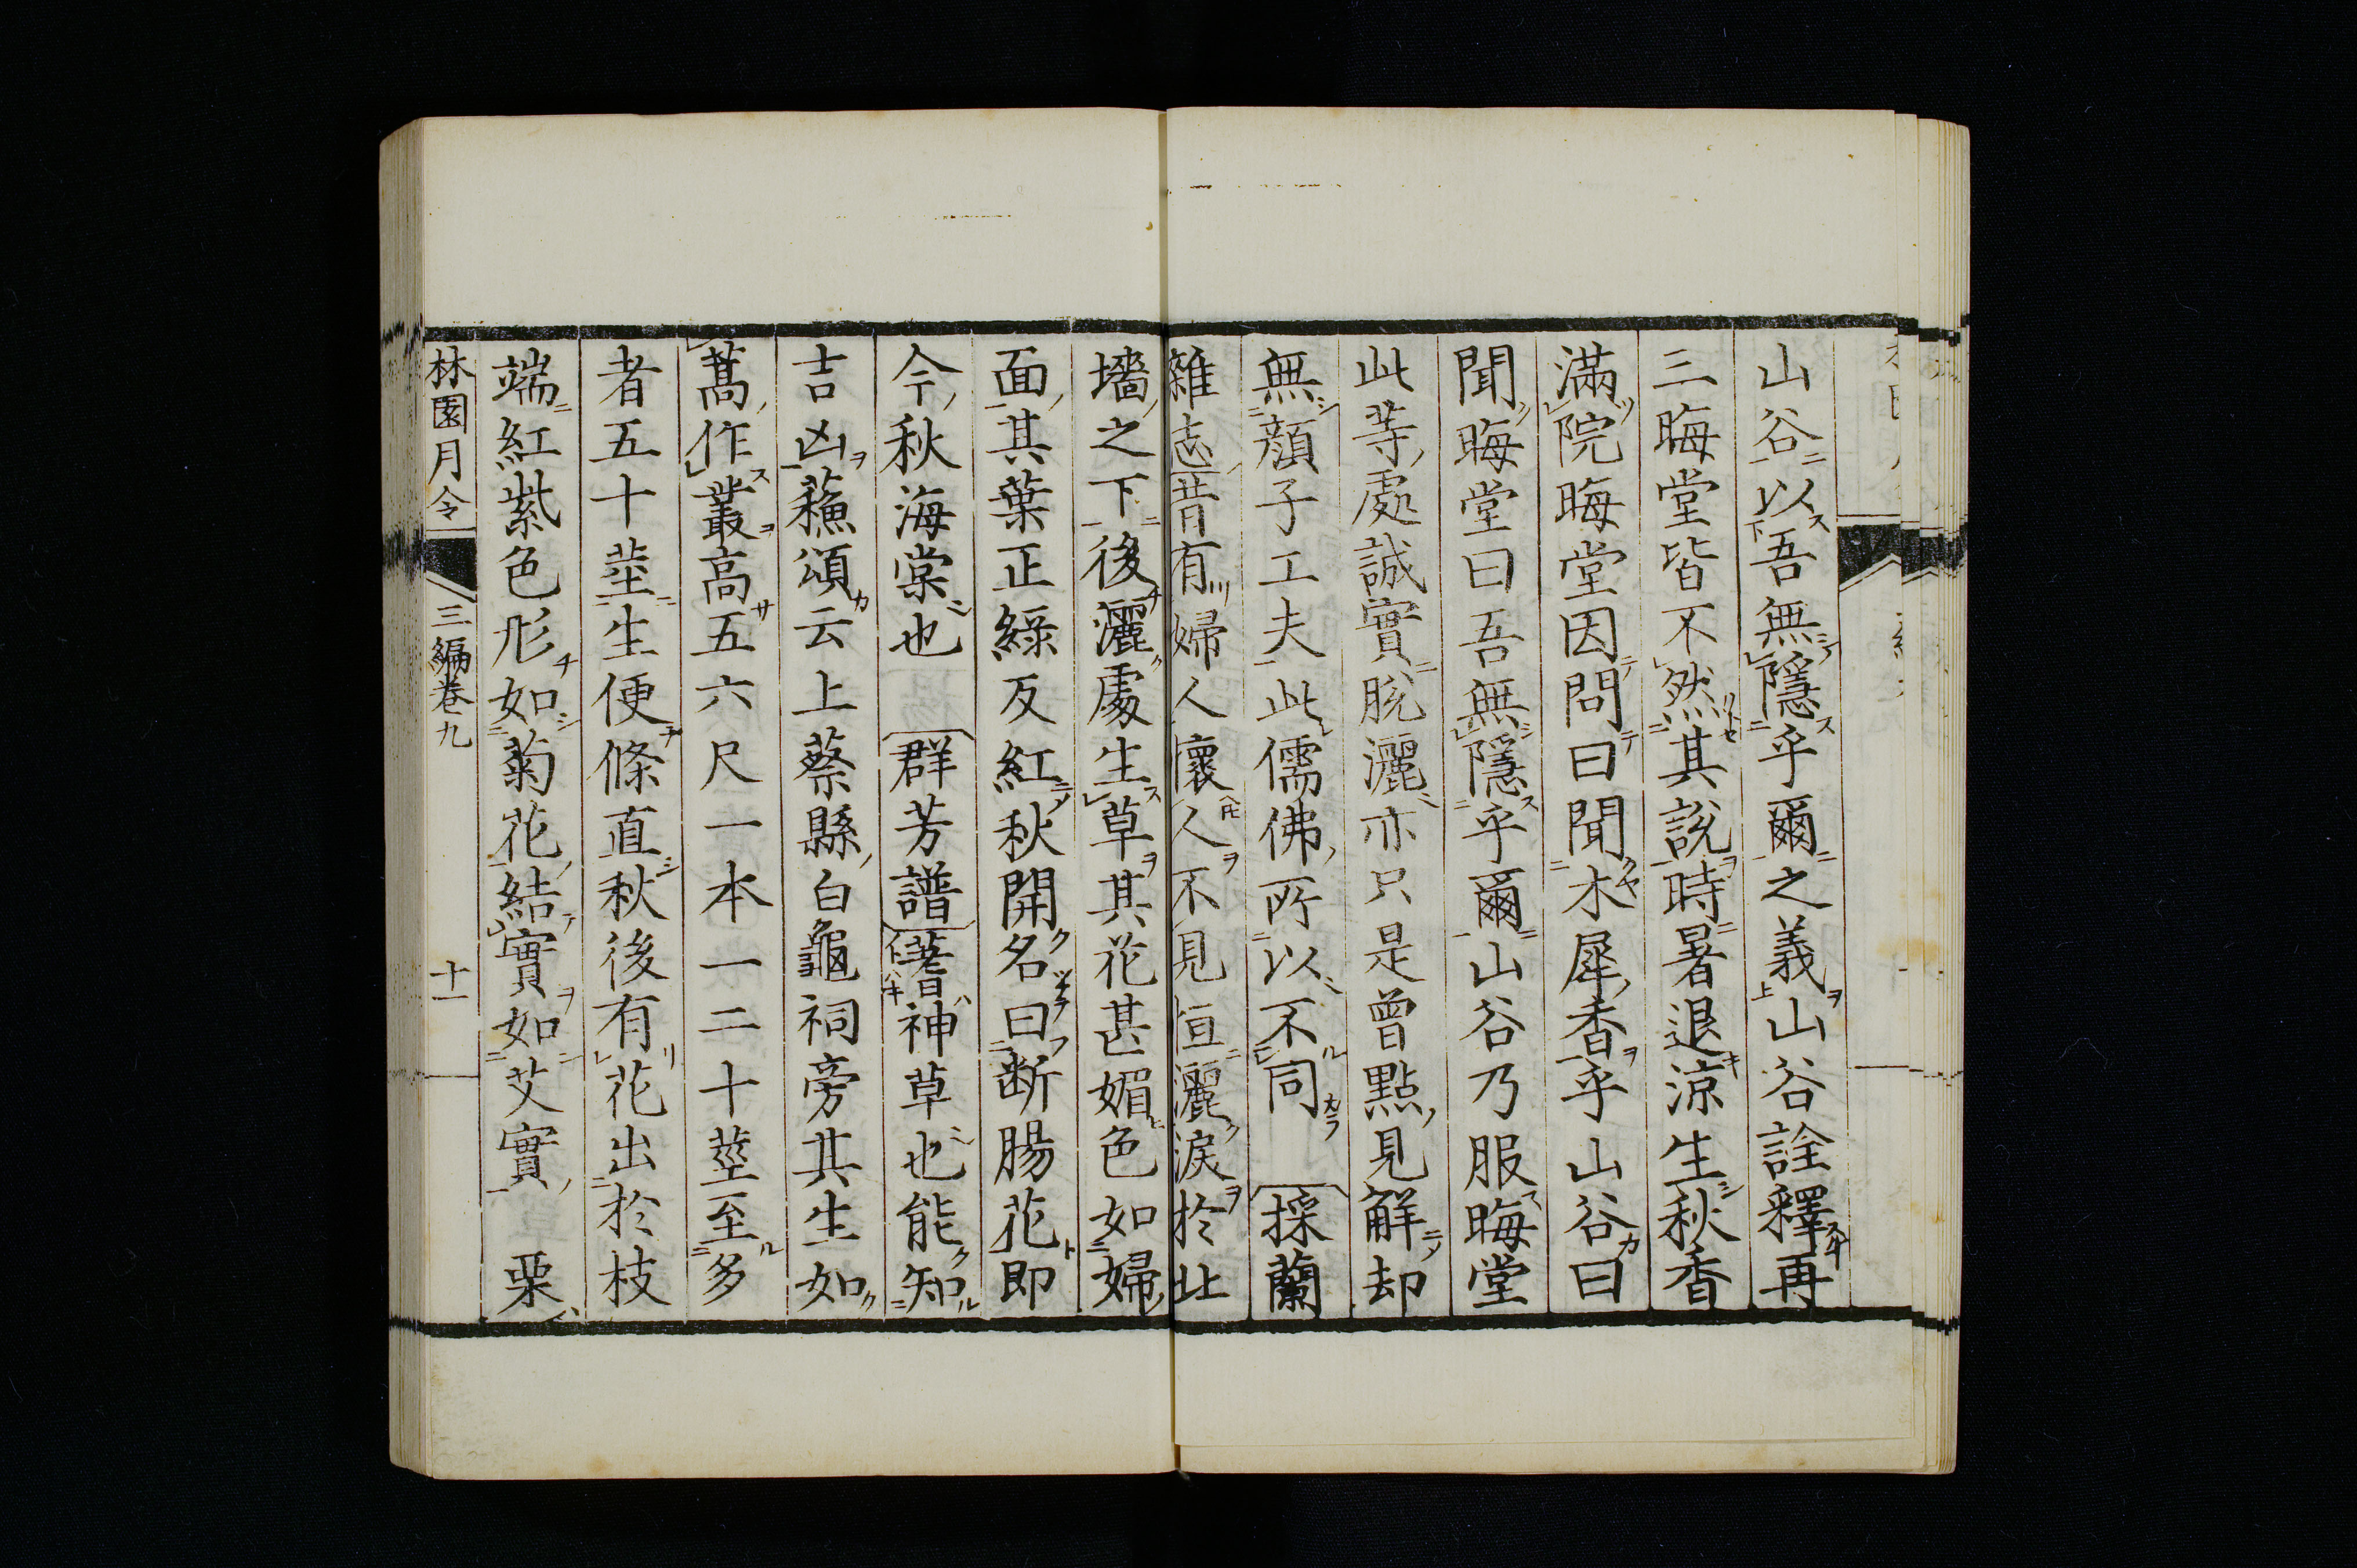 山谷以吾無隱乎爾之義山谷詮釋再
三晦堂皆不然其說時暑退涼生秋香
滿院晦堂因問曰聞木犀香乎山谷曰
聞晦堂曰吾無隱乎爾山谷乃服晦堂
此等處誠實脫灑亦只是曾點見解却
無顏子工夫此儒佛所以不同 採蘭
雜志昔有婦人懷人不見恒灑淚於北
墻之下後灑處生草其花甚媚色如婦
面其葉正綠反紅秋開名曰断腸花即
今秋海棠也 群芳譜蓍神草也能知
吉凶蘓頌云上蔡縣白龜祠旁其生如
蒿作叢高五六尺一本一二十莖至多
者五十莖生便條直秋後有花出於枝
端紅紫色形如菊花結實如艾實 栗
林園月令 三編卷九 十一